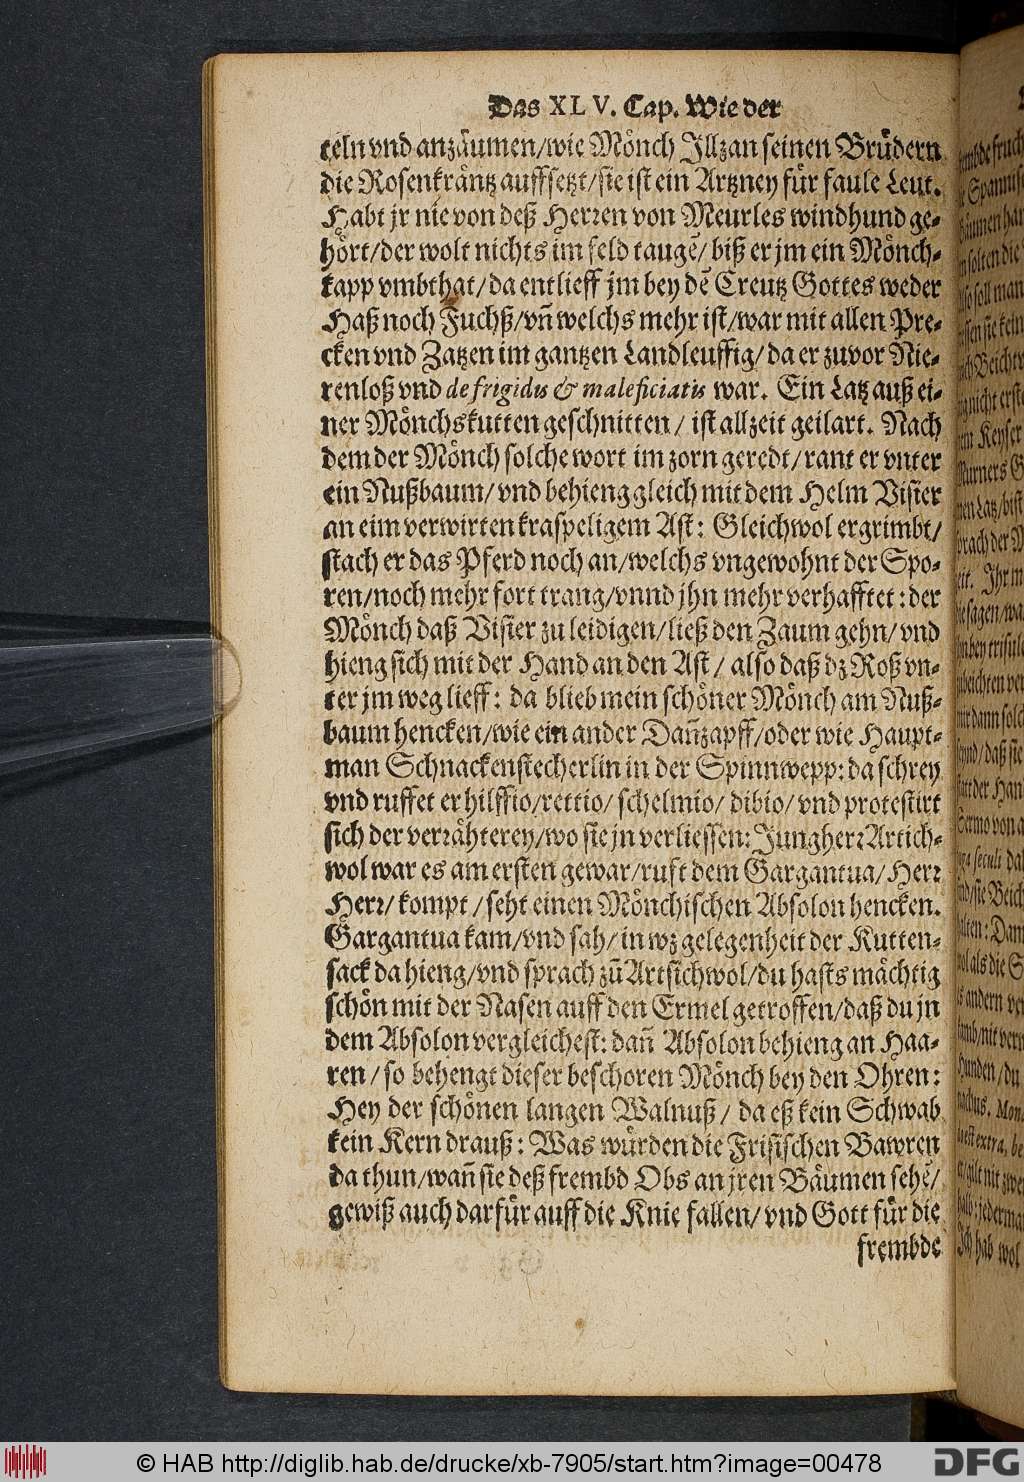 Das XLV. Cap. Wie der
teln vnd anzäumen/wie Mönch Jllzan seinen Brüdern
die Rosenkräntz auffsetzt/sie ist ein Artzney für faule Leut.
Habt jr nie von deß Herren von Meurles windhund ge-
hört/der wolt nichts im feld taugẽ/ biß er jm ein Mönch-
kapp vmbthat/da entlieff jm bey dẽ Creutz Gottes weder
Haß noch Fuchß/vñ welchs mehr ist/war mit allen Pre-
cken vnd Zatzen im gantzen Landleuffig/da er zuvor Nie-
renloß vnd de frigidis & maleficiatis war. Ein Latz auß ei-
ner Mönchskutten geschnitten / ist allzeit geilart. Nach
dem der Mönch solche wort im zorn geredt/rant er vnter
ein Nußbaum/vnd behieng gleich mit dem Helm Visier
an eim verwirten kraspeligem Ast: Gleichwol ergrimbt/
stach er das Pferd noch an/welchs vngewohnt der Spo-
ren/noch mehr fort trang/vnnd jhn mehr verhafftet: der
Mönch daß Visier zu leidigen/ließ den Zaum gehn/vnd
hieng sich mit der Hand an den Ast / also daß dz Roß vn-
ter jm weg lieff: da blieb mein schöner Mönch am Nuß-
baum hencken/wie ein ander Dañzapff/oder wie Haupt-
man Schnackenstecherlin in der Spinnwepp: da schrey
vnd ruffet er hilffio/rettio/ schelmio/ dibio/ vnd protestirt
sich der verrähterey/wo sie jn verliessen: Jungherr Artich-
wol war es am ersten gewar/ruft dem Gargantua/Herr
Herr/ kompt /seht einen Mönchischen Absolon hencken.
Gargantua kam/vnd sah/in wz gelegenheit der Kutten-
sack da hieng/vnd sprach zũ Artsichwol/du hasts mächtig
schön mit der Nasen auff den Ermel getroffen/daß du jn
dem Absolon vergleichest: dañ Absolon behieng an Haa-
ren / so behengt dieser beschoren Mönch bey den Ohren:
Hey der schönen langen Walnuß / da eß kein Schwab
kein Kern drauß: Was würden die Frisischen Bawren
da thun/wañ sie deß frembd Obs an jren Bäumen sehẽ/
gewiß auch darfür auff die Knie fallen/vnd Gott für die
frembde
© HAB http://diglib.hab.de/drucke/xb-7905/start.htm?image=00478
DFG